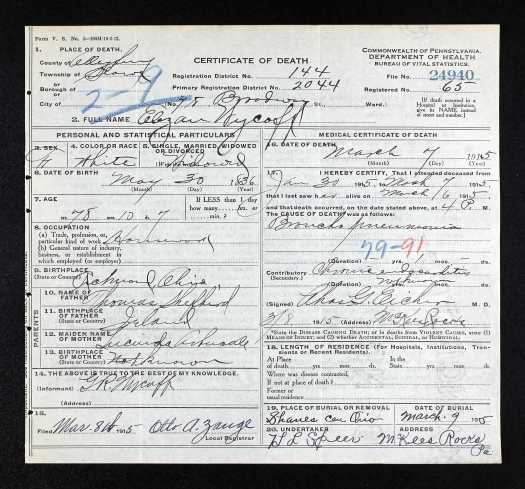 Form V. S. No. 5
1. PLACE OF DEATH.
County of Allegheny
Township of Stowe
or
Borough of
or
City of
2-9
No. Broadway St., Ward
CERTIFICATE OF DEATH
Registration District No. 144
Primary Registration District No. 2044
COMMONWEALTH OF PENNSYLVANIA.
DEPARTMENT OF HEALTH
BUREAU OF VITAL STATISTICS.
File No. 24940
Registered No. 65
(If death occurred in a Hospital or Institution, give its NAME instead of street and number.)
2. FULL NAME Wycoff
PERSONAL AND STATISTICAL PARTICULARS
3. SEX
4. COLOR OR RACE White
5. SINGLE, MARRIED, WIDOWED OR DIVORCED
Widowed
6. DATE OF BIRTH
May 30 1836
(Month) (Day) (Year)
7. AGE
78 10 7
If LESS than 1 day how many hrs. or min.?
8. OCCUPATION
(a) Trade, profession, or particular kind of work Housework
(b) General nature of industry, business, or establishment in which employed (or employer)
9. BIRTHPLACE
(State or Country) Richmond Ohio
10. NAME OF FATHER Thomas Shepherd
11. BIRTHPLACE OF FATHER
(State or Country) Ireland
12. MAIDEN NAME OF MOTHER Lucinda
13. BIRTHPLACE OF MOTHER
(State or Country) Not known
PARENTS
14. THE ABOVE IS TRUE TO THE BEST OF MY KNOWLEDGE.
(Informant) Wycoff
(Address)
15.
Filed Mar 8th 1915 Otto A. Zange
Local Registrar
MEDICAL CERTIFICATE OF DEATH
16. DATE OF DEATH
March 7 1915
(Month) (Day) (Year)
17. I HEREBY CERTIFY, That I attended deceased from
Jan 30 1915, to March 7 1915,
that I last saw her alive on March 6 1915,
and that death occurred, on the date stated above, at 4 P. M.
The CAUSE OF DEATH was as follows:
Broncho pneumonia
79-91
(Duration) yrs. mos. ds.
Contributory Chronic endocarditis
(Secondary)
(Duration) yrs. mos. ds.
(Signed) M. D.
3/8 1915 (Address) McKees Rocks
*State the DISEASE CAUSING DEATH; or in deaths from VIOLENT CAUSES, state (1) MEANS OF INJURY; and (2) whether ACCIDENTAL, SUICIDAL, or HOMICIDAL.
18. LENGTH OF RESIDENCE (For Hospitals, Institutions, Transients or Recent Residents).
At place of death yrs. mos. ds. In the State yrs. mos. ds.
Where was disease contracted,
if not at place of death?
Former or usual residence
19. PLACE OF BURIAL OR REMOVAL
Shanes cem Ohio
DATE OF BURIAL
March 9 1915
20. UNDERTAKER
H L Speer
ADDRESS
McKees Rocks Pa